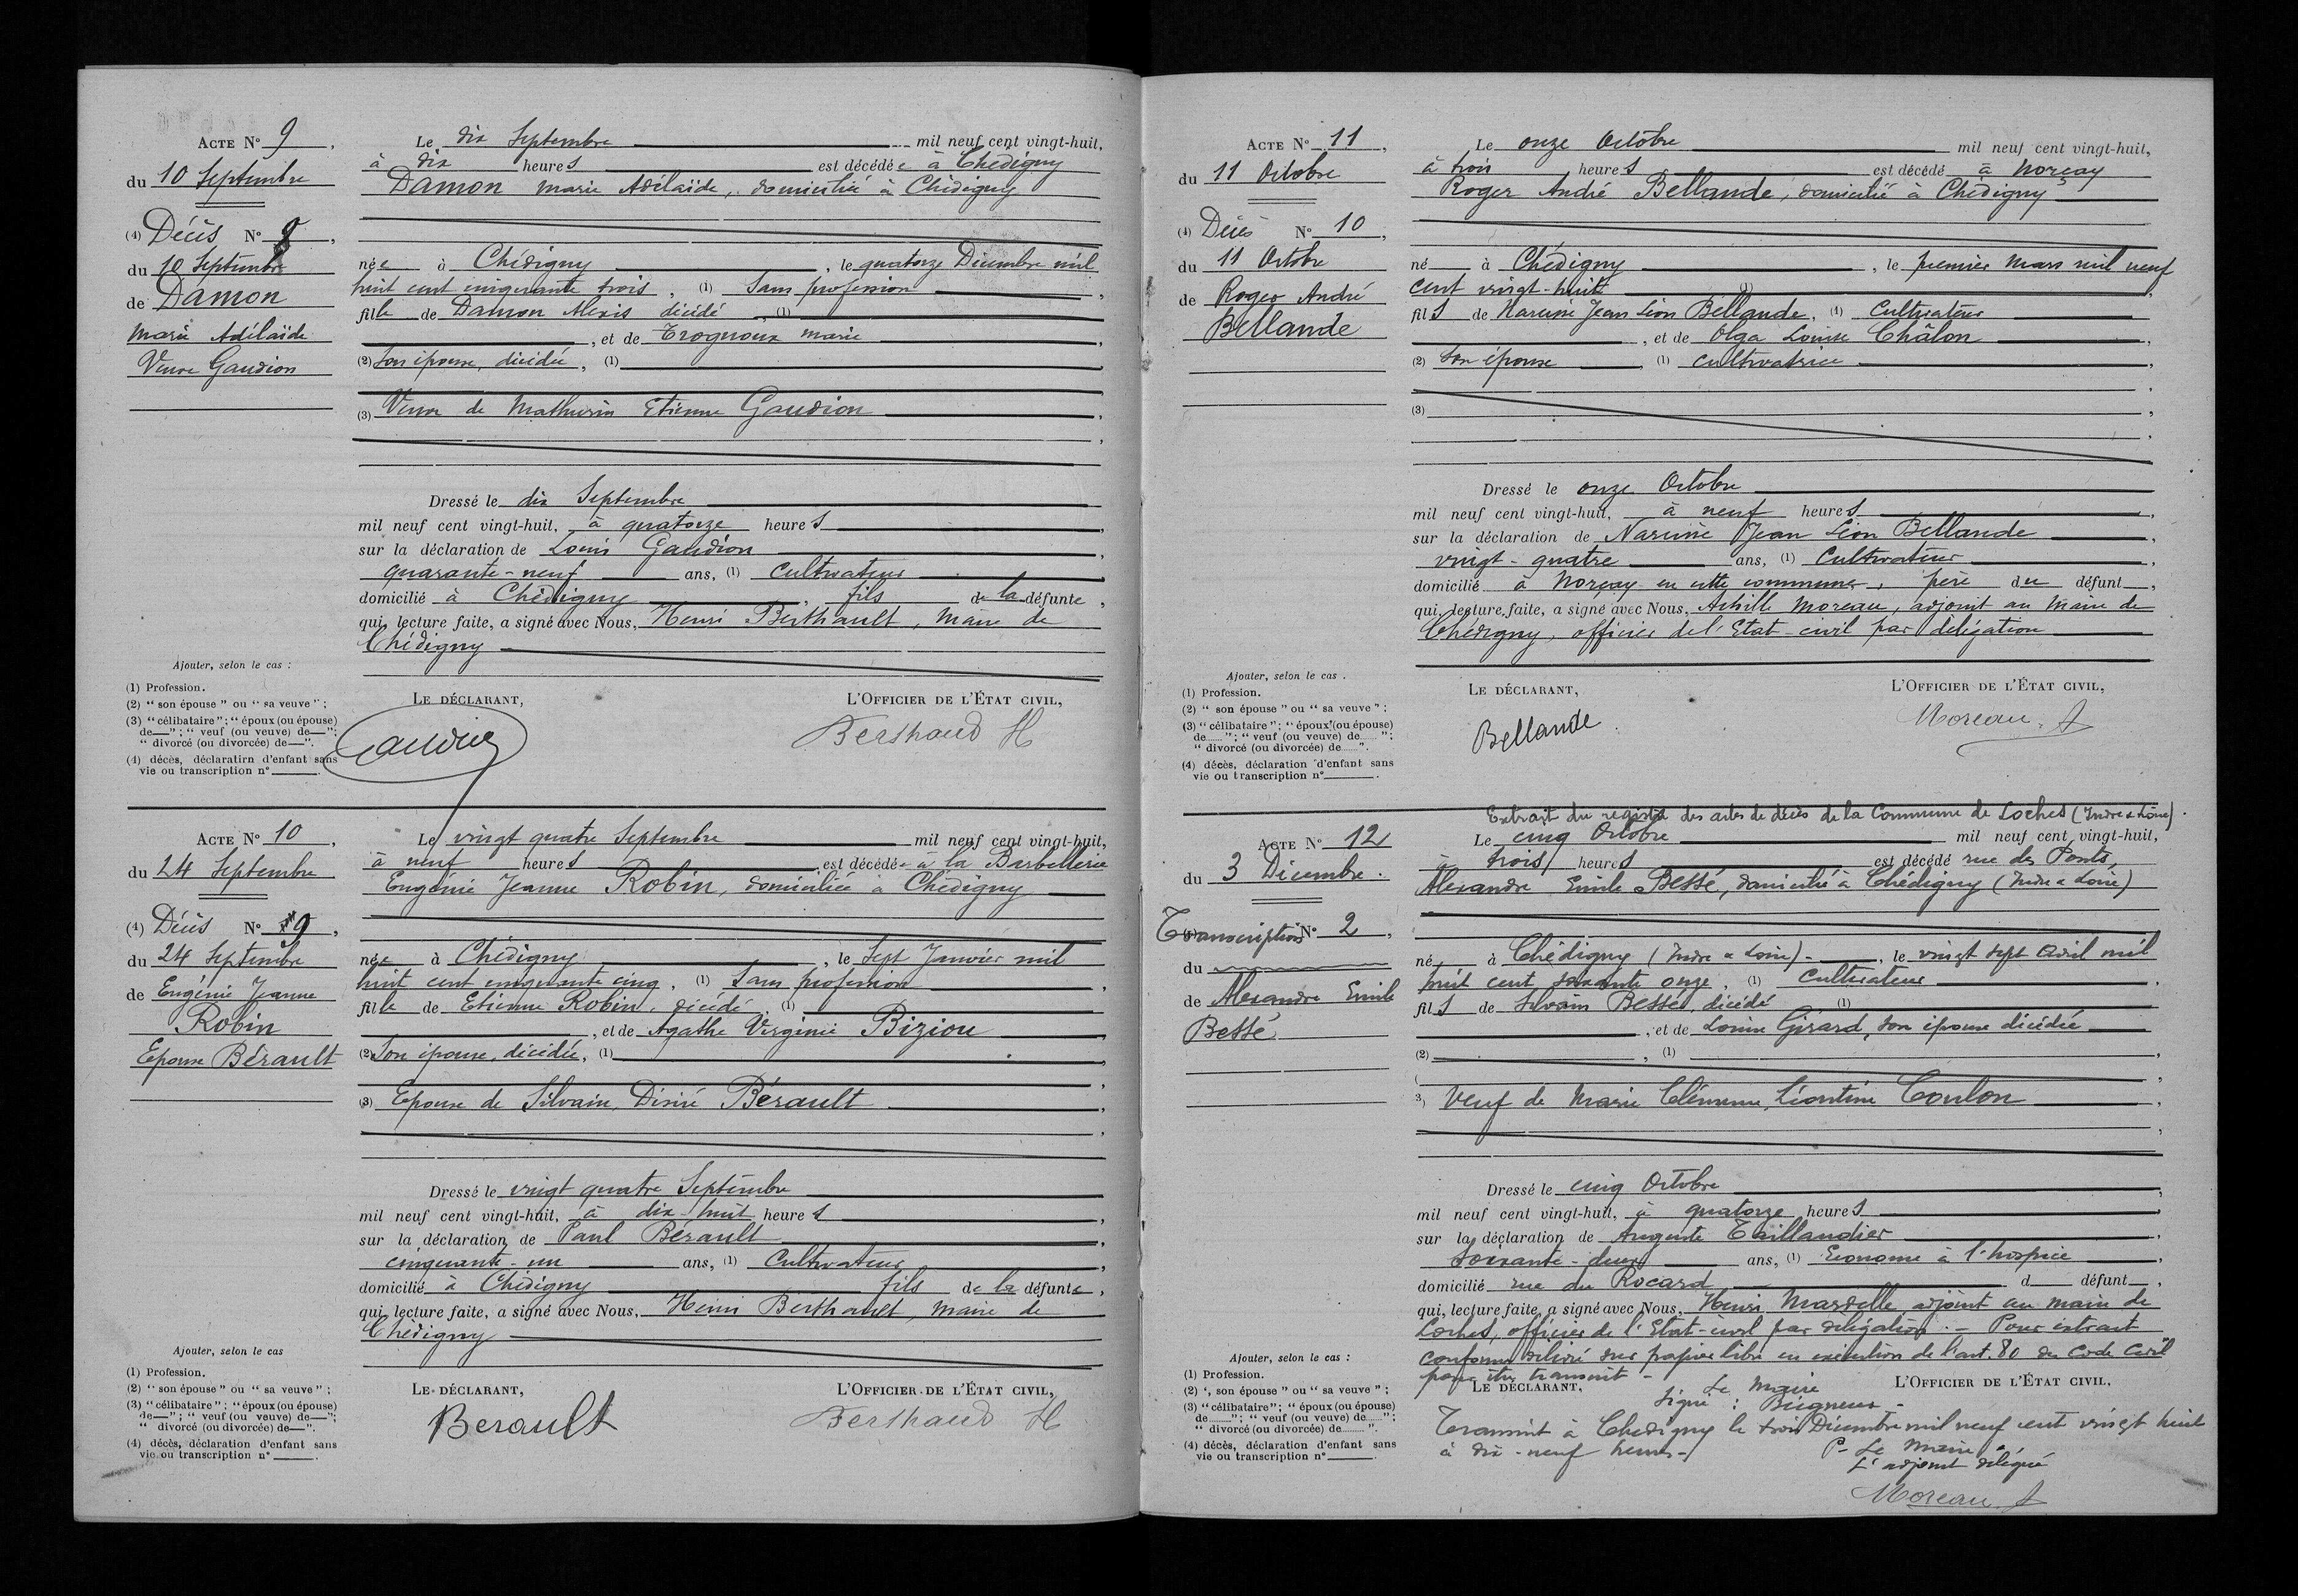 Acte N° 9,
du 10 Septembre
(4) Décès N° 8,
du 10 Septembre
de Damon
Marie Adélaïde
Veuve Gaudion
Le dix Septembre mil neuf cent vingt-huit,
à dix heures est décédée à Chédigny
Damon Marie Adélaïde, domiciliée à Chédigny
née à Chédigny, le quatorze Décembre mil
huit cent cinquante trois, (1) Sans profession,
fille de Damon Alexis décédé, (1)
, et de Trognoux Marie
(2) Son épouse, décédée, (1)
(3) Veuve de Mathurin Etienne Gaudion,
Dressé le dix Septembre
mil neuf cent vingt-huit, à quatorze heures
sur la déclaration de Louis Gaudion,
quarante-neuf ans, (1) Cultivateur,
domicilié à Chédigny, fils de la défunte,
qui, lecture faite, a signé avec Nous, Henri Berthault, Maire de
Chédigny
Ajouter, selon le cas :
(1) Profession.
(2) “ son épouse ” ou “ sa veuve ” ;
(3) “ célibataire ” ; “ époux (ou épouse)
de — ” ; “ veuf (ou veuve) de — ” ;
“ divorcé (ou divorcée) de — ”.
(4) décès, déclaratirn d'enfant sans
vie ou transcription n° .
Le déclarant,
L'Officier de l'État civil,
Gaudion
Berthaud H
Acte N° 10,
du 24 Septembre
(4) Décès N° 9,
du 24 Septembre
de Eugénie Jeanne
Robin
Epouse Bérault
Le vingt quatre Septembre mil neuf cent vingt-huit,
à neuf heures est décédée à la Barbellerie
Eugénie Jeanne Robin, domiciliée à Chédigny
née à Chédigny, le Sept Janvier mil
huit cent cinquante cinq, (1) Sans profession,
fille de Etienne Robin, décédé, (1)
, et de Agathe Virginie Biziou
(2) Son épouse, décédée, (1)
(3) Epouse de Silvain, Désiré Bérault,
Dressé le vingt quatre Septembre
mil neuf cent vingt-huit, à dix-huit heures
sur la déclaration de Paul Bérault,
cinquante-un ans, (1) Cultivateur,
domicilié à Chédigny fils de la défunte,
qui, lecture faite, a signé avec Nous, Henri Berthault, Maire de
Chédigny
Ajouter, selon le cas
(1) Profession.
(2) “ son épouse ” ou “ sa veuve ” ;
(3) “ célibataire ” ; “ époux (ou épouse)
de — ” ; “ veuf (ou veuve) de — ” ;
“ divorcé (ou divorcée) de — ”.
(4) décès, déclaration d'enfant sans
vie ou transcription n° .
Le déclarant,
L'Officier de l'État civil,
Berault
Berthaud H
Acte N° 11,
du 11 Octobre
(4) Décès N° 10,
du 11 Octobre
de Roger André
Bellande
Le onze Octobre mil neuf cent vingt-huit,
à trois heures est décédé à Norçay
Roger André Bellande, domicilié à Chédigny
né à Chédigny, le premier Mars mil neuf
cent vingt-huit (1),
fils de Narcisse Jean Léon Bellande, (1) Cultivateur
, et de Olga Louise Châlon,
(2) Son épouse, (1) cultivatrice,
(3)
Dressé le onze Octobre
mil neuf cent vingt-huit, à neuf heures,
sur la déclaration de Narcisse Jean Léon Bellande,
vingt-quatre ans, (1) Cultivateur,
domicilié à Norçay en cette commune, père du défunt,
qui, lecture faite, a signé avec Nous, Achille Moreau, adjoint au Maire de
Chédigny, officier de l'Etat-civil par délégation
Ajouter, selon le cas .
(1) Profession.
(2) “ son épouse ” ou “ sa veuve ” ;
(3) “ célibataire ” ; “ époux (ou épouse)
de ...... ” ; “ veuf (ou veuve) de ...... ” ;
“ divorcé (ou divorcée) de ...... ”.
(4) décès, déclaration d'enfant sans
vie ou transcription n° .
Le déclarant,
L'Officier de l'État civil,
Bellande
Moreau. A
Acte N° 12
du 3 Décembre.
Transcription N° 2,
du
de Alexandre Emile
Bessé
Extrait du registre des actes de décès de la Commune de Loches (Indre & Loire).
Le cinq Octobre mil neuf cent vingt-huit,
à trois heures est décédé rue des Ponts,
Alexandre Emile Bessé, domicilié à Chédigny (Indre & Loire)
né à Chédigny (Indre & Loire) -, le vingt sept Avril mil
huit cent soixante onze, (1) Cultivateur
fils de Silvain Bessé, décédé (1)
, et de Louise Girard, son épouse décédée
(2) , (1)
3) Veuf de Marie Clémence, Léontine Coulon,
Dressé le cinq Octobre
mil neuf cent vingt-huit, à quatorze heures
sur la déclaration de Auguste Taillandier,
soixante-deux ans, (1) Econome à l'hospice,
domicilié rue du Rocard d défunt,
qui, lecture faite, a signé avec Nous, Henri Mardelle adjoint au maire de
Loches, officier de l'Etat-civil par délégation. - Pour extrait
conforme délivré sur papier libre en exécution de l'art. 80 du Code Civil
pour être transcrit -
Le déclarant,
L'Officier de l'État civil,
Le Maire
Signé :
Transcrit à Chédigny le trois Décembre mil neuf cent vingt huit
à dix-neuf heures -
P. Le Maire
L'adjoint délégué
Moreau. A
Ajouter, selon le cas :
(1) Profession.
(2) ‘, son épouse ” ou “ sa veuve ” ;
(3) “ célibataire ” ; “ époux (ou épouse)
de ...... ” ; “ veuf (ou veuve) de ...... ” ;
“ divorcé (ou divorcée) de ...... ”.
(4) décès, déclaration d'enfant sans
vie ou transcription n° .